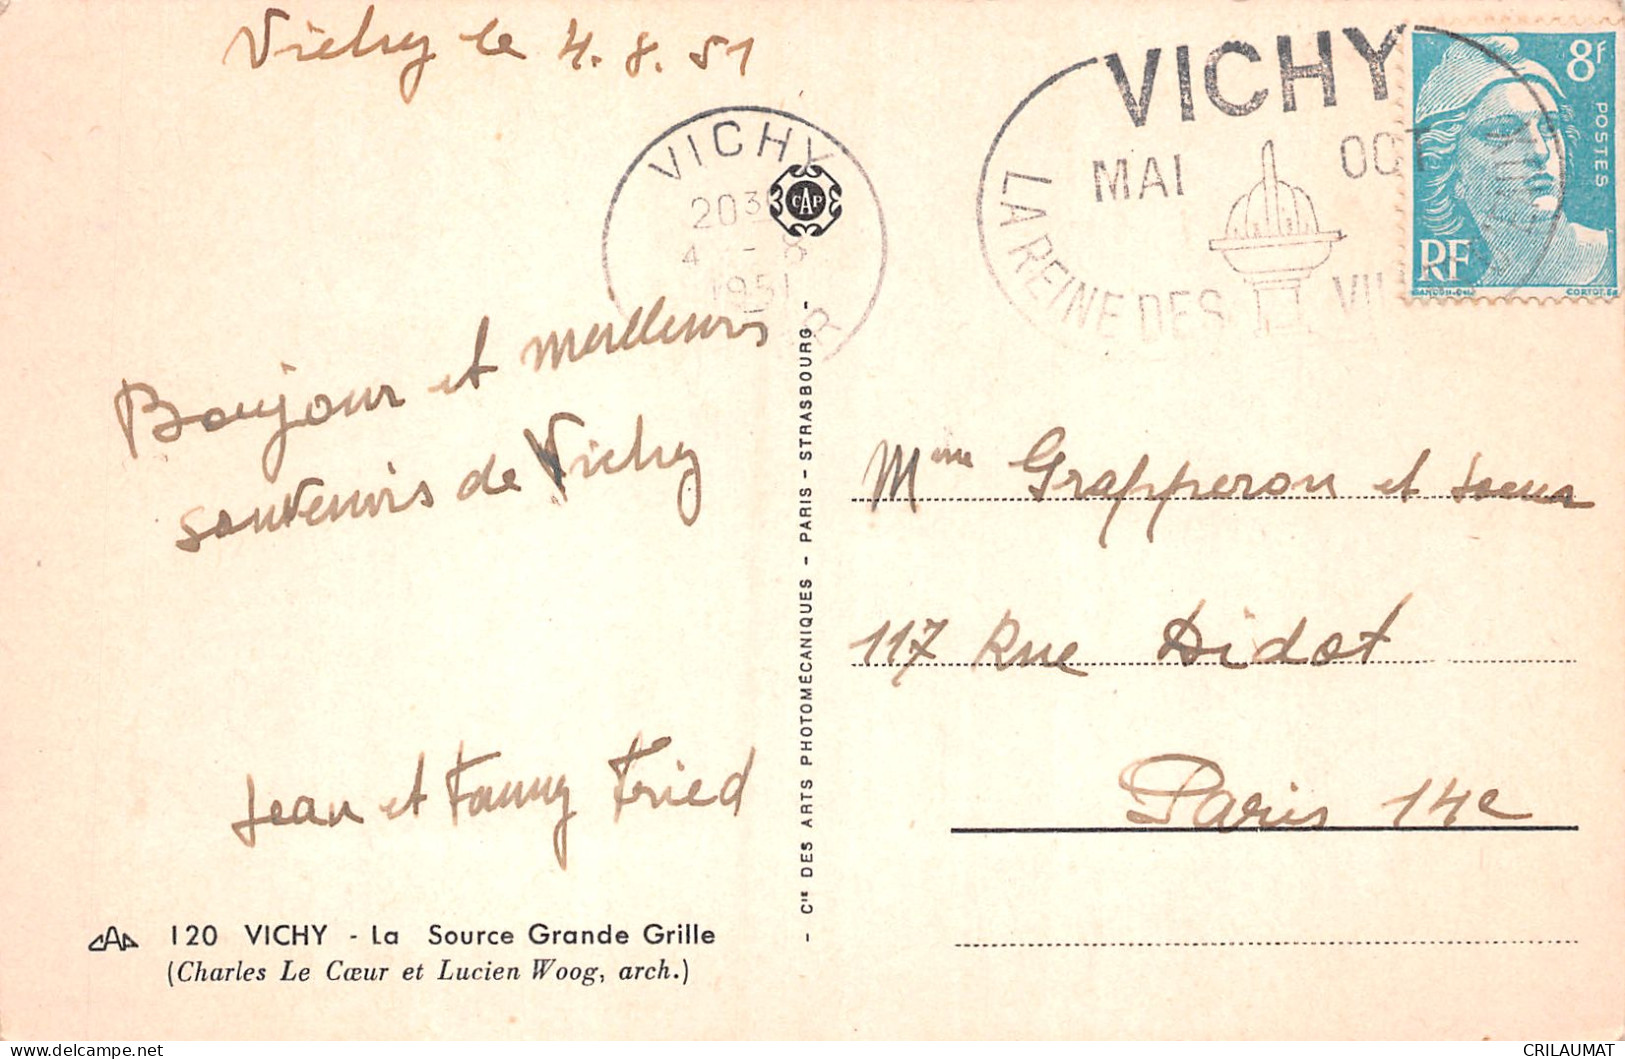 Vichy le 4.8.51
VICHY
20 30
4 - 8
1951
VICHY
MAI OCT
LA REINE DES VILLES
8F
POSTES
RF
GANDON
CORTOT
CAP
Bonjour et meilleurs
souvenirs de Vichy
Jean et Fanny Fried
Mme Grapperon et soeur
117 Rue Didot
Paris 14e
- Cie DES ARTS PHOTOMÉCANIQUES - PARIS - STRASBOURG -
CAP 120 VICHY - La Source Grande Grille
(Charles Le Cœur et Lucien Woog, arch.)
CRILAUMAT